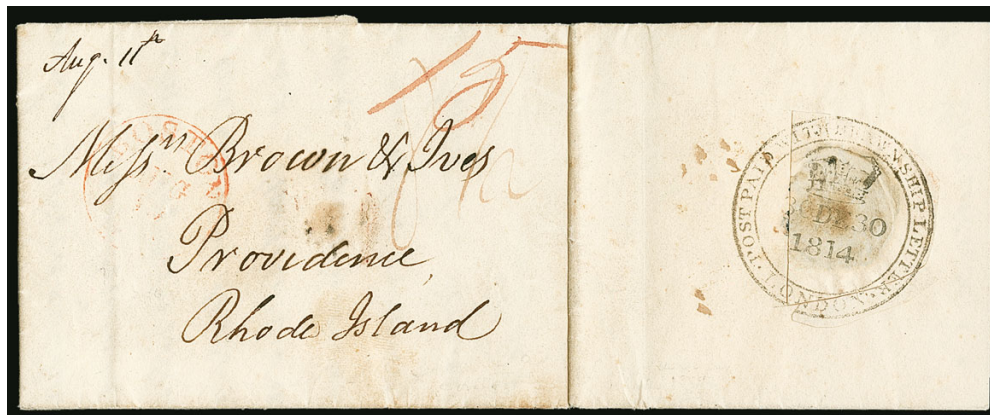 Aug. 11th
15
Messrs Brown & Ives
Providence,
Rhode Island
POST PAID WITHDRAWN SHIP LETTER LONDON
30
1814